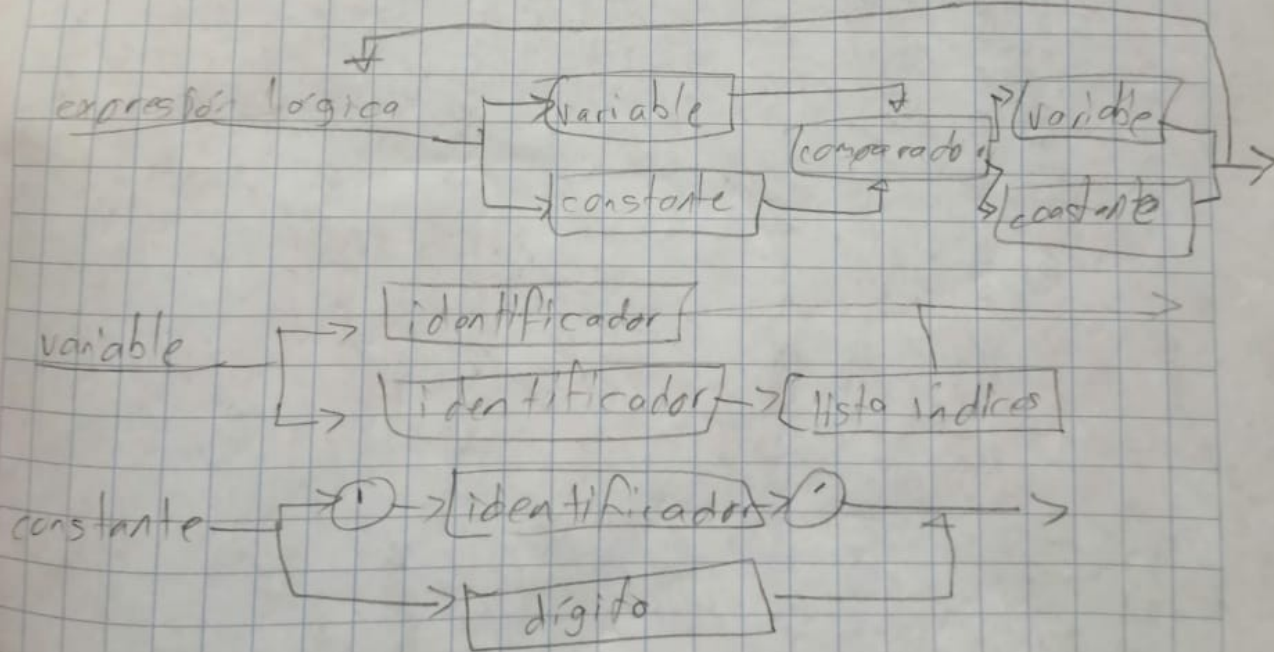 expresión lógica
variable
variable
comparador
constante
constante
variable
identificador
identificador
lista índices
constante
'
identificador
'
dígito